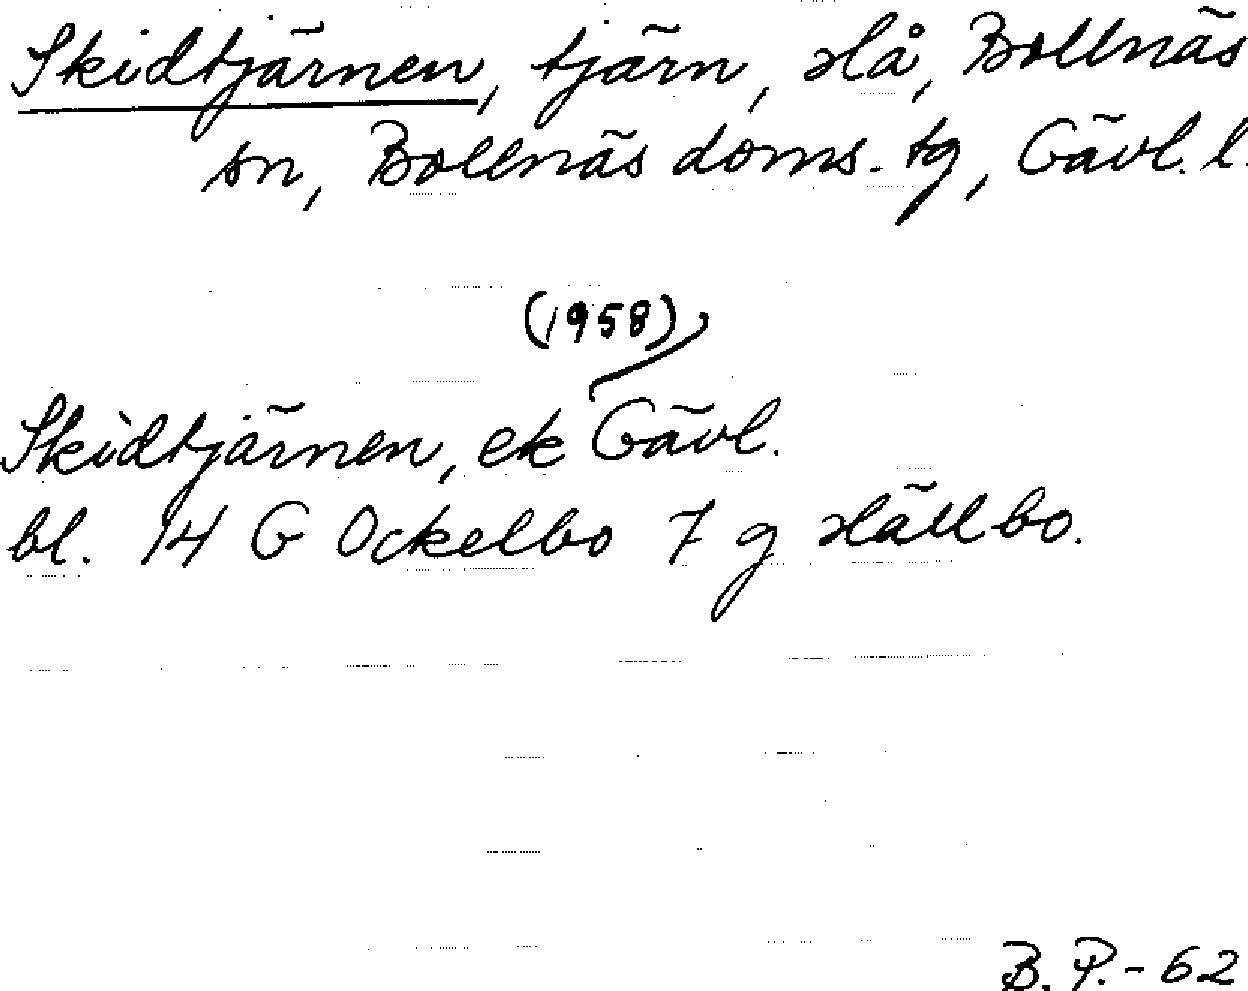 Skidtjärnen, tjärn, Hå, Bollnäs
sn, Bollnäs doms. tg, Gävl. l.
(1958)
Skidtjärnen, ek Gävl.
bl. 14 G Ockelbo 7 g Hällbo.
B. P. - 62